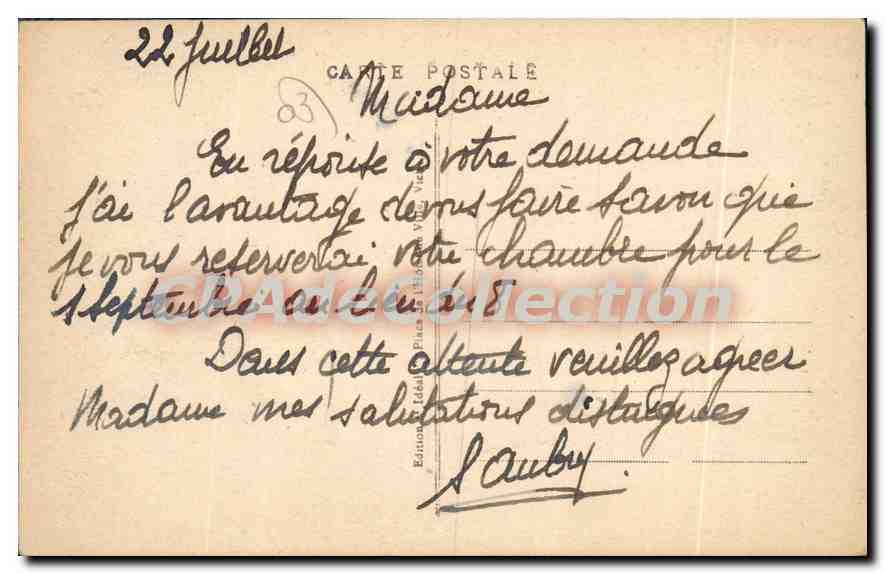 22 Juillet
CARTE POSTALE
03
Madame
En réponse à votre demande
J'ai l'avantage de vous faire savoir que
je vous reserverai votre chambre pour le
1 Septembre au lieu du 8
Dans cette attente veuillez agreer
Madame mes salutations distinguees
S Aubry
Edition Idéale Place de l'Hôtel de Ville Vic
CPAdeCollection